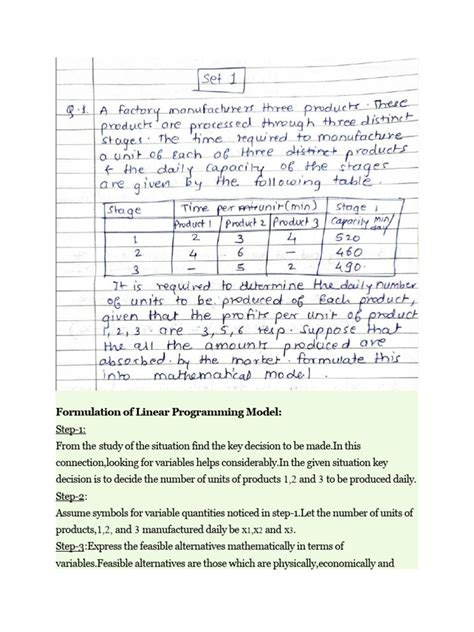 Set 1
Q.1. A factory manufacturers three products. These
products are processed through three distinct
stages. The time required to manufacture
a unit of each of three distinct products
& the daily capacity of the stages
are given by the following table.
Stage Time per unit (min) Stage
Product 1 Product 2 Product 3 Capacity min/day
1 2 3 4 520
2 4 6 - 460
3 - 5 2 490.
It is required to determine the daily number
of units to be produced of each product,
given that the profits per unit of product
1, 2, 3 are 3, 5, 6 resp. Suppose that
the all the amounts produced are
absorbed by the market. formulate this
into mathematical model.
Formulation of Linear Programming Model:
Step-1:
From the study of the situation find the key decision to be made.In this
connection,looking for variables helps considerably.In the given situation key
decision is to decide the number of units of products 1,2 and 3 to be produced daily.
Step-2:
Assume symbols for variable quantities noticed in step-1.Let the number of units of
products,1,2, and 3 manufactured daily be x1,x2 and x3.
Step-3:Express the feasible alternatives mathematically in terms of
variables.Feasible alternatives are those which are physically,economically and